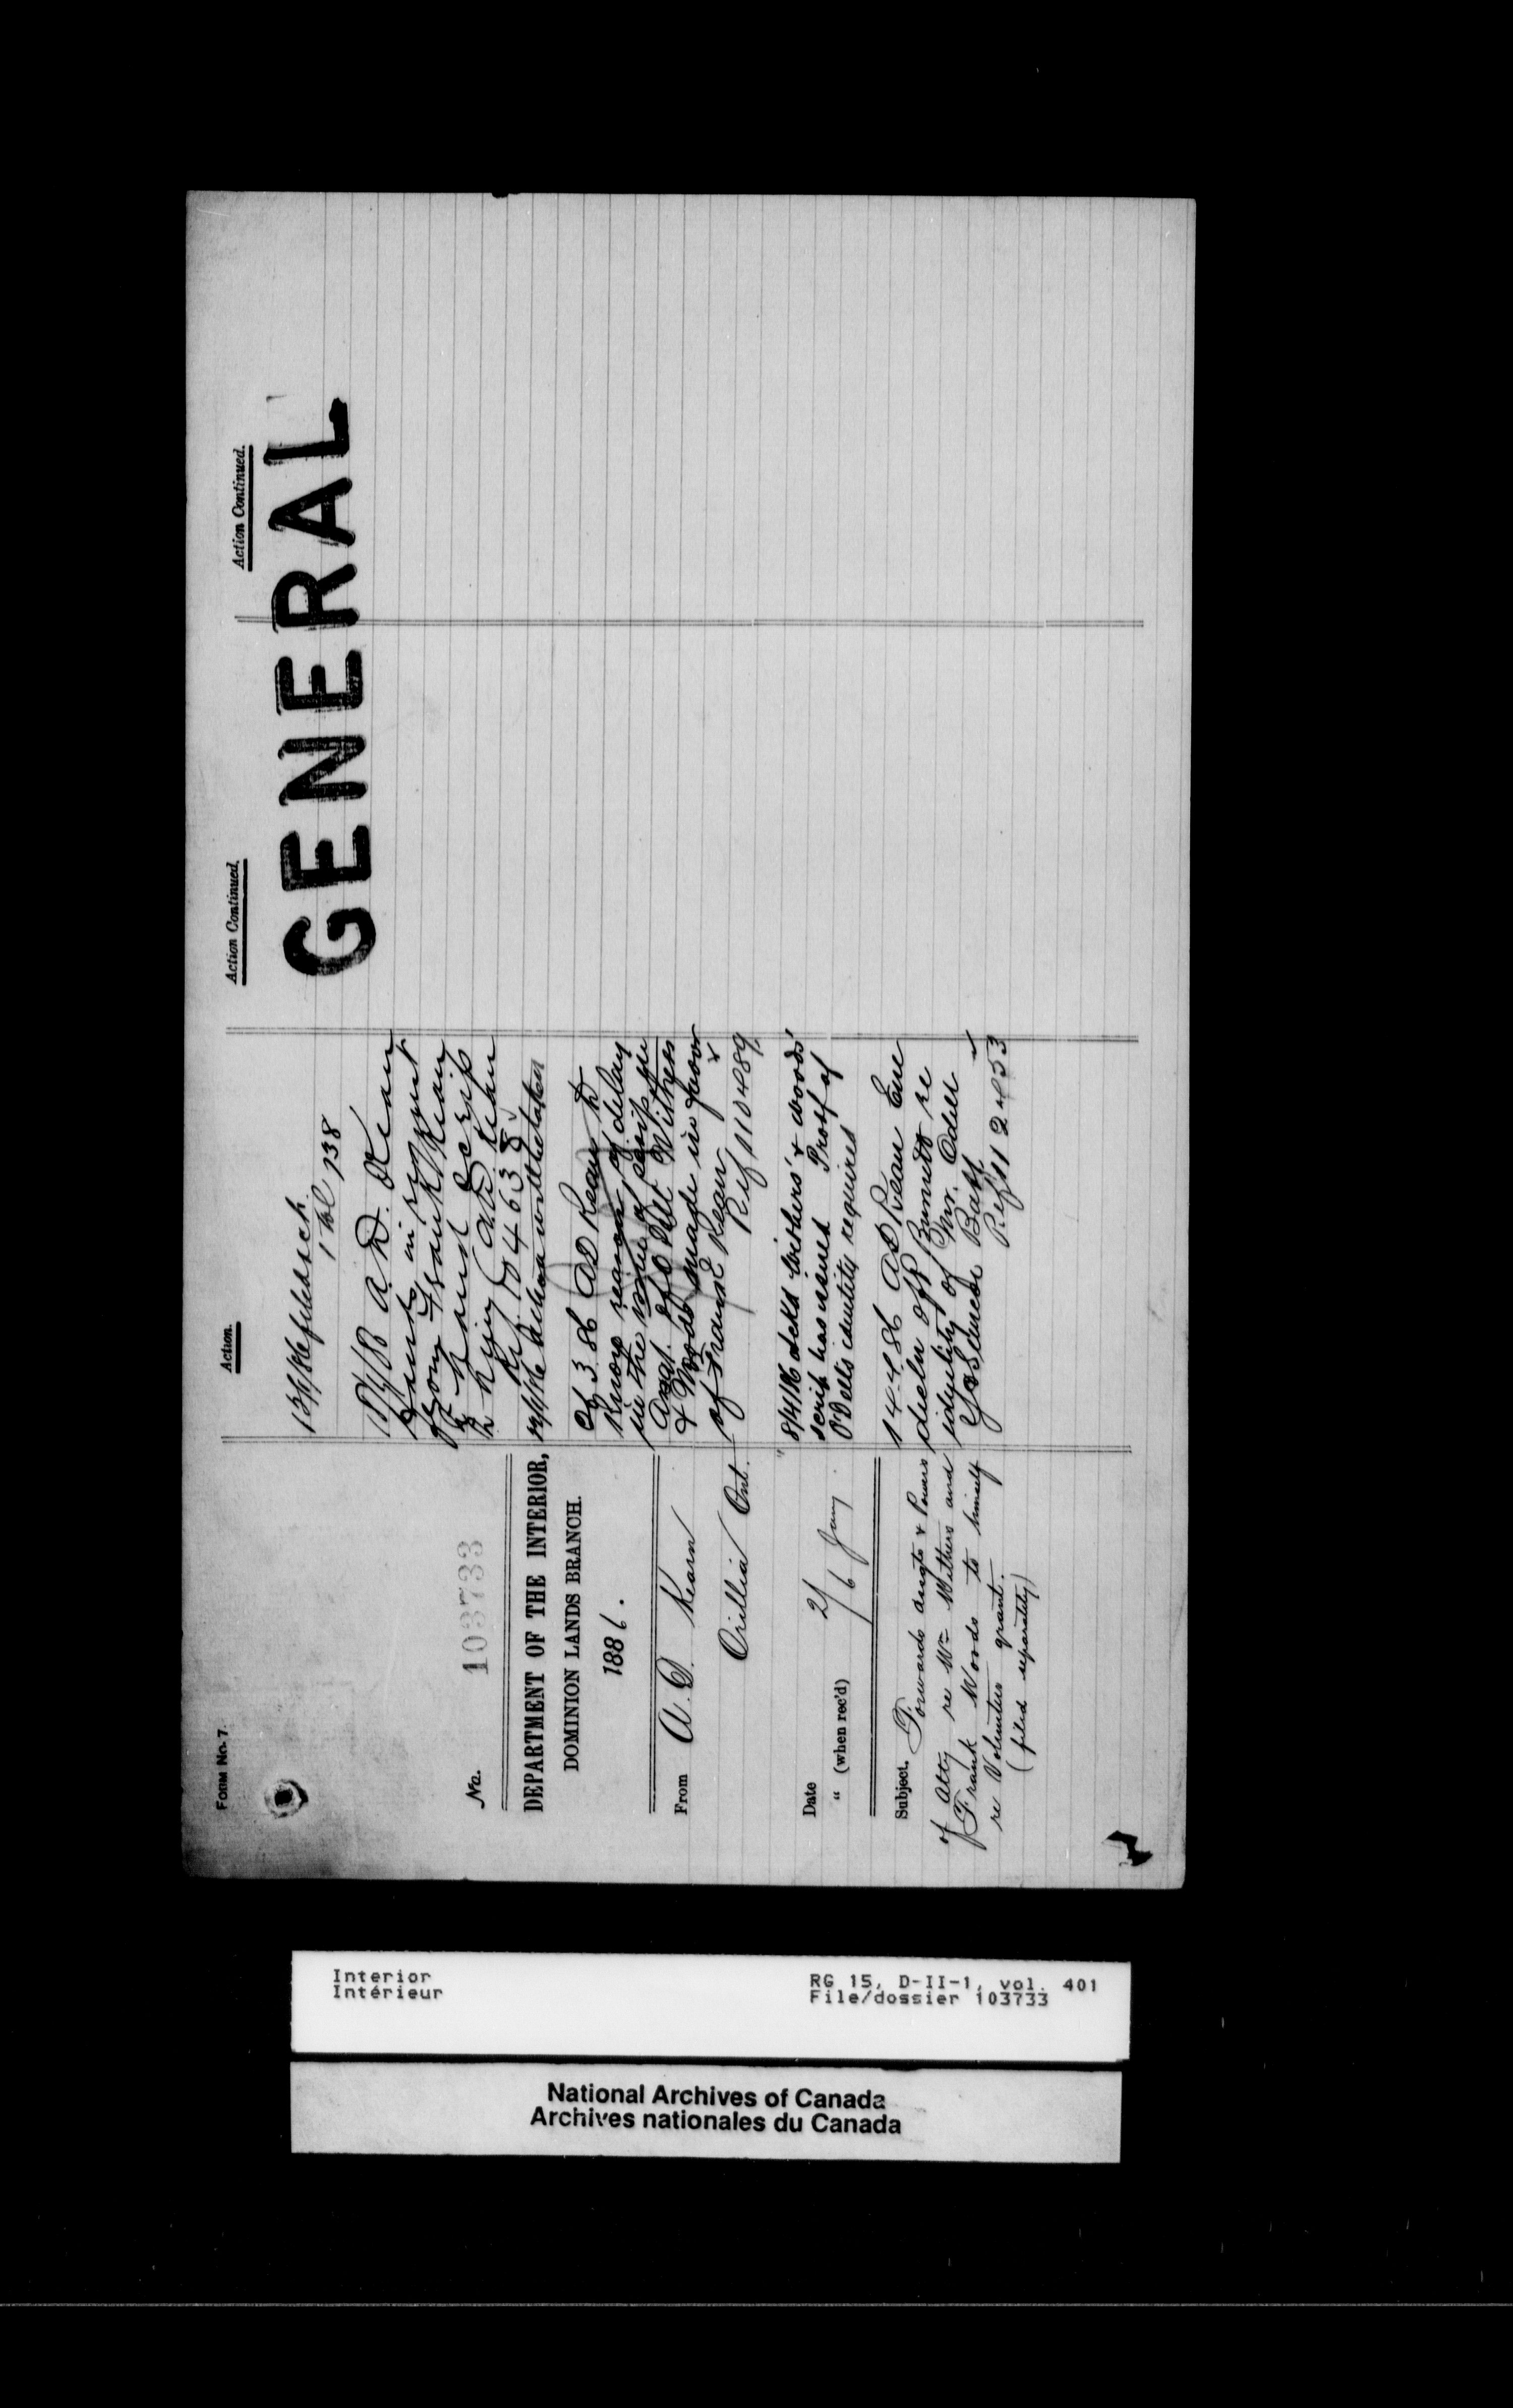 FORM No. 7.
No. 103733
DEPARTMENT OF THE INTERIOR,
DOMINION LANDS BRANCH.
1886.
From A. D. Kean
Orillia Ont.
Date 2/
" (when rec'd) 6 Jany
Subject. Forwards assgts & Powers
of Atty re Wm Withers and
Frank Woods to himself
re Volunteer grant.
(filed separately)
Action.
13/1/86 filed sch
1 Vol 138
A. D. Kean
in
from Frank Kean
scrip
Ref. 104638
action will be taken
3 86 A D Kean to
know reason of delay
in the issue of scrip in
assgt. of O'Dell Withers
& Woods made in favor
of Frank E Kean &
Ref 110489
8/4/86 Ackd Withers' & Woods'
scrip has issued Proof of
O'Dell's identity required
14-4-86 A D Kean Encl
decln of P Burnett re
identity of Mr. Odell
Batt
Ref 112453
Action Continued.
Action Continued.
GENERAL
Interior
Intérieur
RG 15, D-II-1, vol. 401
File/dossier 103733
National Archives of Canada
Archives nationales du Canada